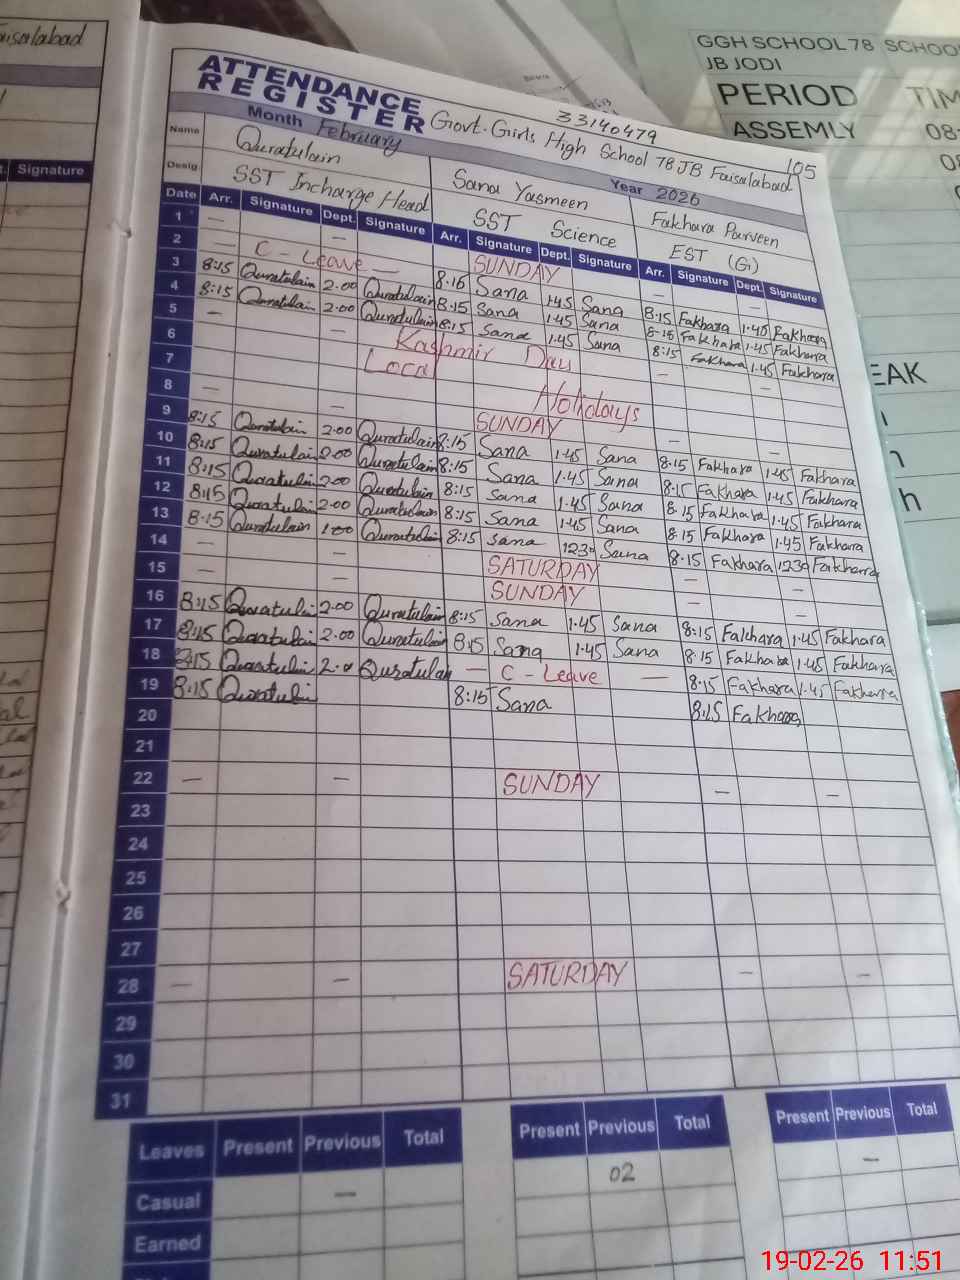 aisalabad
Signature
GGH SCHOOL 78 SCHOO
JB JODI
PERIOD TIM
ASSEMLY 08
EAK
ATTENDANCE
REGISTER
33140479
105
Govt. Girls High School 78 JB Faisalabad
Month February Year 2026
Name Quratulain Sana Yasmeen Fakhara Parveen
Desig. SST Incharge Head SST Science EST (G)
Date Arr. Signature Dept. Signature Arr. Signature Dept. Signature Arr. Signature Dept. Signature
1 — — SUNDAY — —
2 — C - Leave — 8:16 Sana 1:45 Sana 8:15 Fakhara 1:45 Fakhara
3 8:15 Quratulain 2:00 Quratulain 8:15 Sana 1:45 Sana 8-15 Fakhara 1:45 Fakhara
4 8:15 Quratulain 2:00 Quratulain 8:15 Sana 1:45 Sana 8:15 Fakhara 1:45 Fakhara
5 — — Kashmir Day — —
6 Local Holidays
7
8 — — SUNDAY — —
9 8:15 Quratulain 2:00 Quratulain 8:15 Sana 1:45 Sana 8:15 Fakhara 1:45 Fakhara
10 8:15 Quratulain 2:00 Quratulain 8:15 Sana 1:45 Sana 8:15 Fakhara 1:45 Fakhara
11 8:15 Quratulain 2:00 Quratulain 8:15 Sana 1:45 Sana 8:15 Fakhara 1:45 Fakhara
12 8:15 Quratulain 2:00 Quratulain 8:15 Sana 1:45 Sana 8:15 Fakhara 1:45 Fakhara
13 8:15 Quratulain 1:00 Quratulain 8:15 Sana 1230 Sana 8:15 Fakhara 1230 Fakhara
14 — — SATURDAY — —
15 — — SUNDAY — —
16 8:15 Quratulain 2:00 Quratulain 8:15 Sana 1:45 Sana 8:15 Fakhara 1:45 Fakhara
17 8:15 Quratulain 2:00 Quratulain 8:15 Sana 1:45 Sana 8:15 Fakhara 1:45 Fakhara
18 8:15 Quratulain 2:00 Quratulain — C - Leave — 8:15 Fakhara 1:45 Fakhara
19 8:15 Quratulain 8:15 Sana 8:15 Fakhara
20
21
22 — — SUNDAY — —
23
24
25
26
27
28 — — SATURDAY — —
29
30
31
Leaves Present Previous Total Present Previous Total Present Previous Total
Casual — 02 —
Earned
19-02-26 11:51